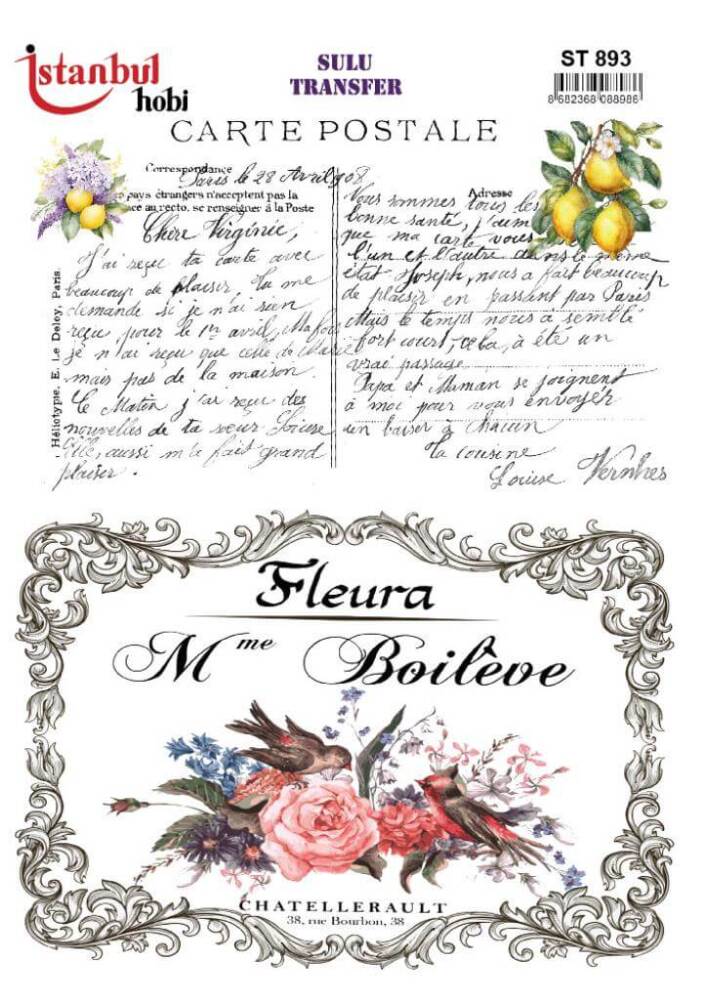 istanbul
hobi
SULU
TRANSFER
ST 893
8 682368 088986
CARTE POSTALE
Correspondance
Paris le 28 Avril 908
pays étrangers n'acceptent pas la
au recto. se renseigner à la Poste
Chère Virginie,
J'ai reçu ta carte avec
beaucoup de plaisir. Tu me
demande si je n'ai rien
reçu pour le 1er avril, Ma foi
je n'ai reçu que celle de Marie
mais pas de la maison.
Ce Matin j'ai reçu des
nouvelles de ta sœur Louise
Elle, aussi m'a fait grand
plaisir.
Héliotypie, E. Le Deley, Paris.
Adresse
Nous sommes tous les
bonne santé, j'aim
que ma carte vous
l'un et l'autre dans le même
état Joseph, nous a fait beaucoup
de plaisir en passant par Paris
Mais le temps nous a semblé
fort court, cela, à été un
vrai passage
Papa et Maman se joignent
à moi pour vous envoyér
un baiser à Chacun
Ta cousine
Louise Vernhes
Fleura
Mme Boilève
CHATELLERAULT
38, rue Bourbon, 38